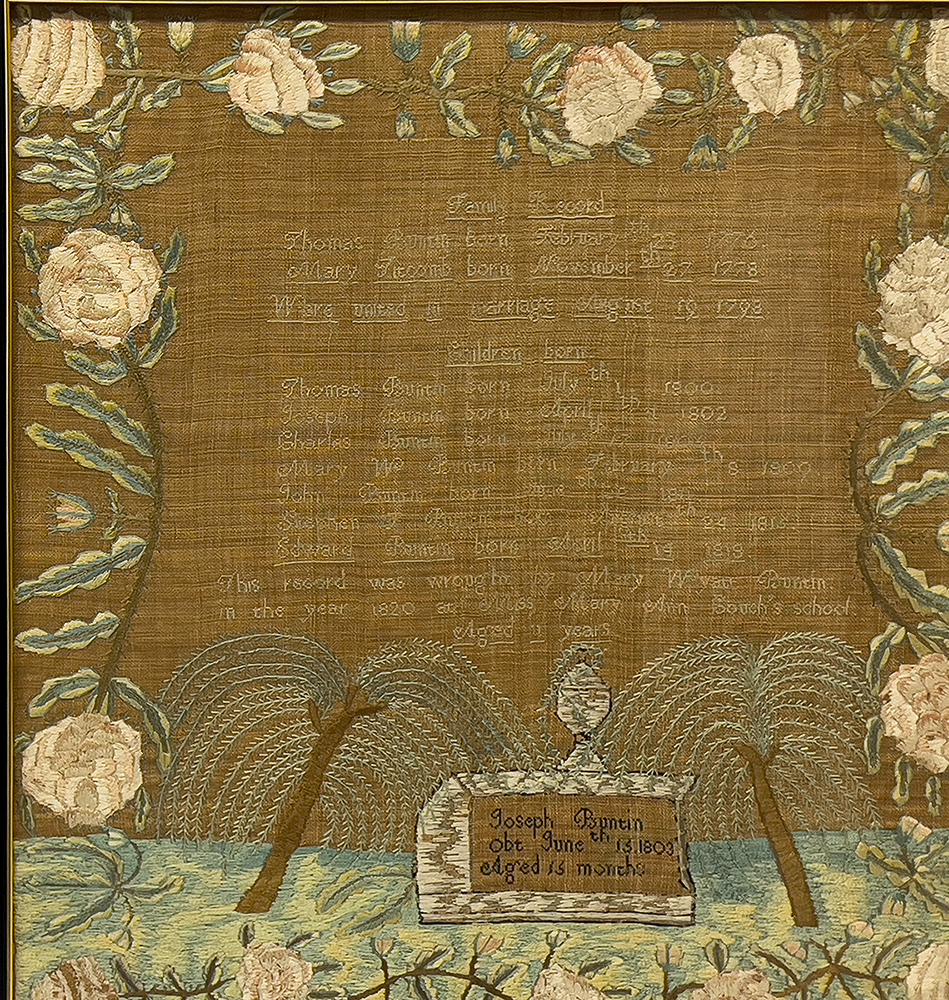 Family Record
Thomas Buntin born February th 23 1776
Mary Titcomb born November th 27 1778
Were united in marriage August 19 1798
Children born
Thomas Buntin born July th 1800
Joseph Buntin born April th 1802
Charles Buntin born
Mary Wt Buntin born February th 8 1809
John Buntin born
Stephen Buntin born August th 24
Edward Buntin born April th 19 1819
This record was wrought by Mary Wyatt Buntin
in the year 1820 at Miss Mary Ann school
Aged 11 years
Joseph Buntin
obt June th 15 1803
Aged 15 months